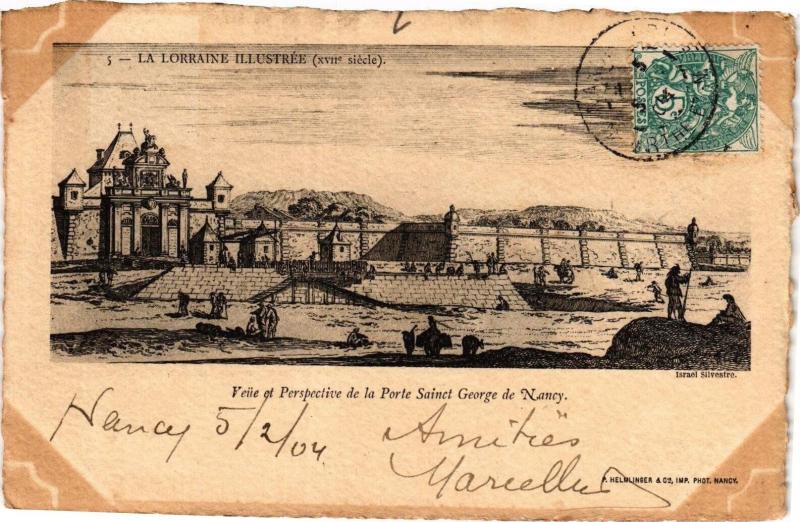 5 — LA LORRAINE ILLUSTRÉE (XVIIe siècle).
Israel Silvestre.
Veüe et Perspective de la Porte Sainct George de Nancy.
Nancy 5/2/04
Amitiés
P. HELMLINGER & Cie, IMP. PHOT. NANCY.